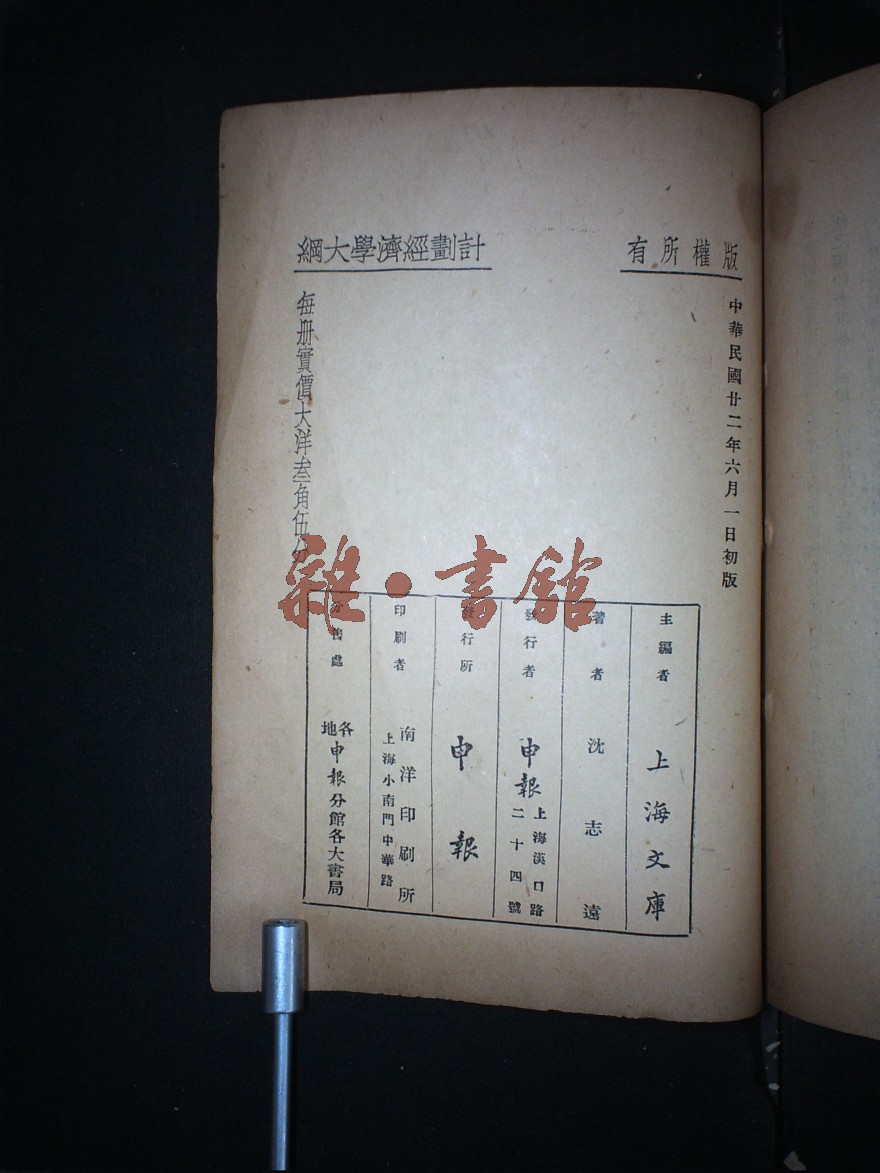 版權所有
中華民國廿二年六月一日初版
計劃經濟學大綱
每册實價大洋叁角伍分
主編者 上海文庫
著者 沈志遠
發行者 申報 上海漢口路二十四號
發行所 申報
印刷者 南洋印刷所 上海小南門中華路
分售處 各地申報分館各大書局
雜·書館